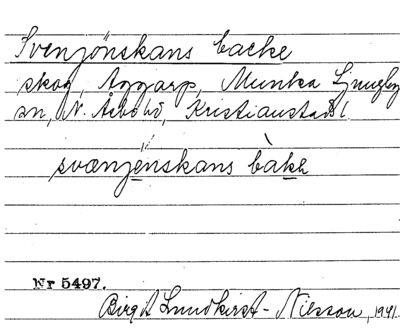 Svenjönskans backe
skog, Aggarp, Munka Ljungby
sn, N. Åsbo hd, Kristianstads l.
svænjēnskans bàkə
Nr 5497.
Birgit Lundkvist-Nilsson, 1941.